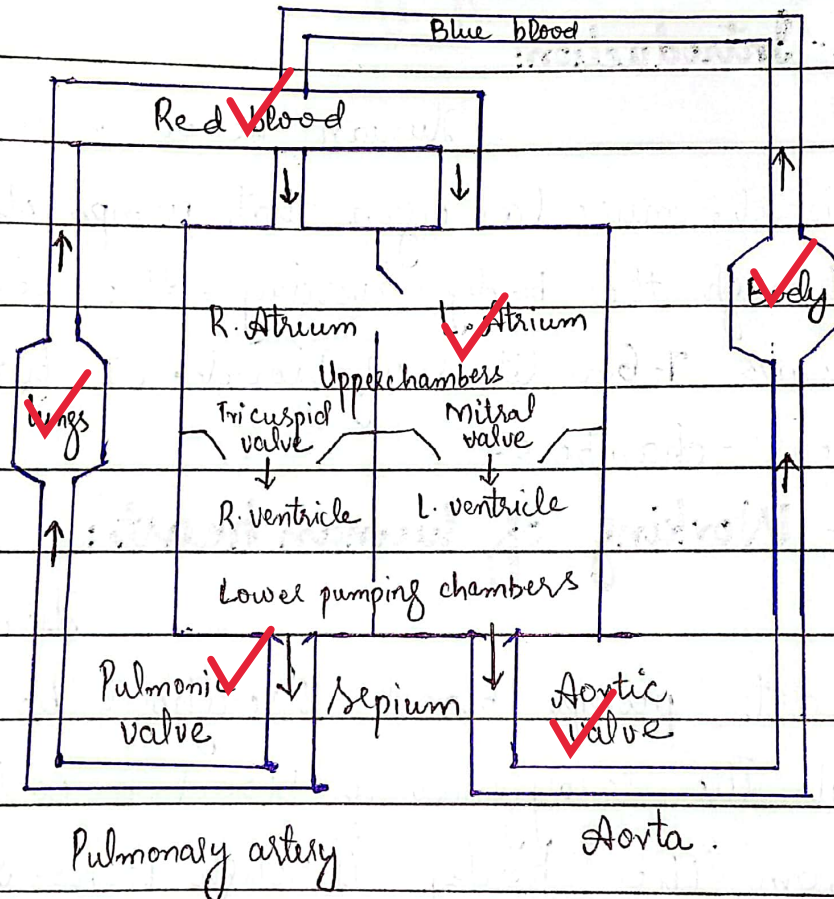 Blue blood
Red blood
Body
R. Atrium L. Atrium
Upper chambers
lungs
Tricuspid valve
Mitral valve
R. ventricle L. ventricle
Lower pumping chambers
Pulmonic valve
Sepium
Aortic valve
Pulmonary artery
Aorta.